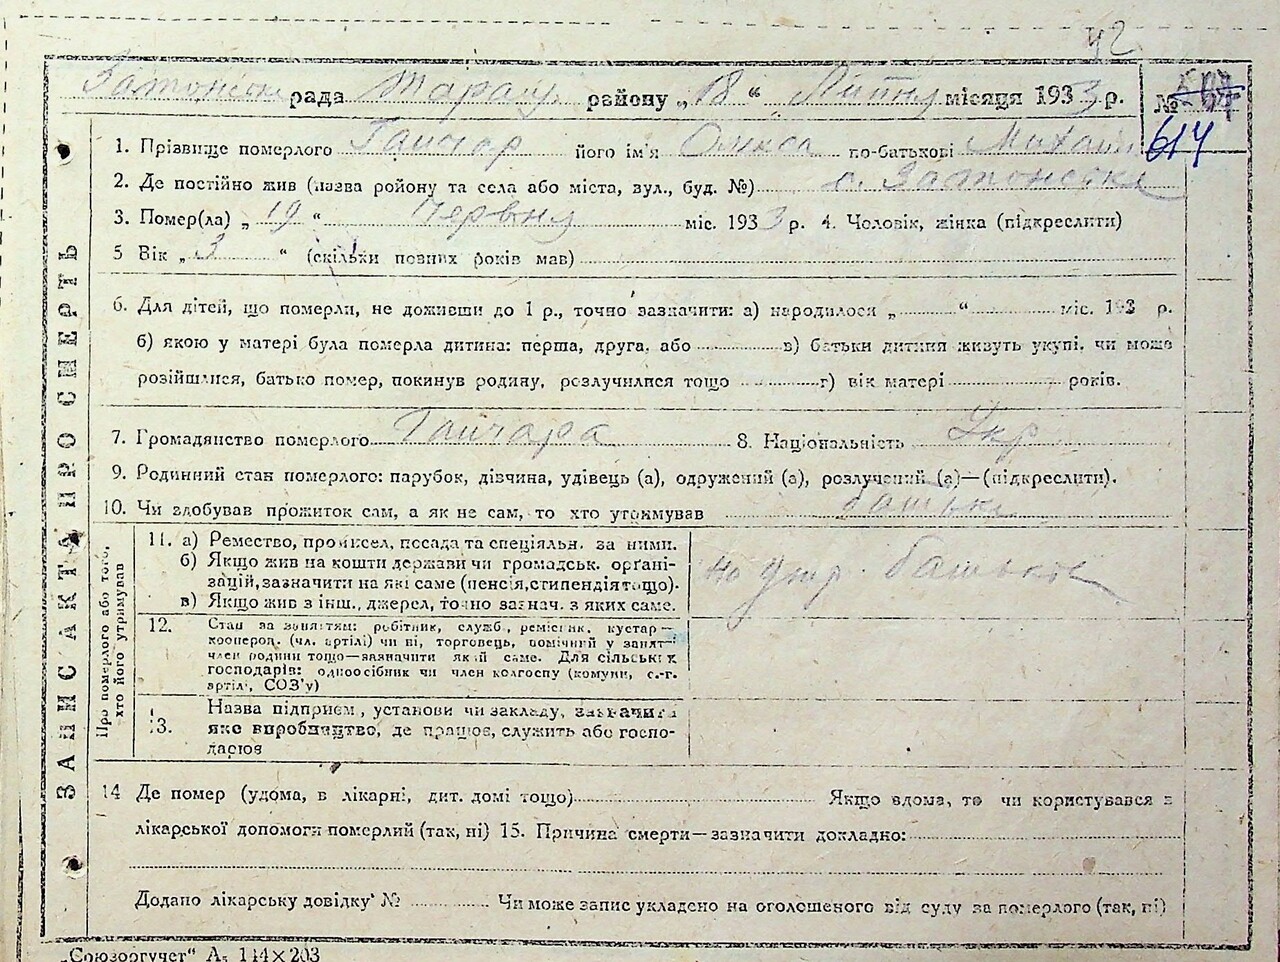 42
рада Таращ. району „18“ Липня місяця 1933 р. №
614
ЗАПИСКА ПРО СМЕРТЬ
1. Прізвище померлого Гончар його ім'я Олекса по-батькові Михайл
2. Де постійно жив (назва ройону та села або міста, вул., буд. №) с.
3. Помер(ла) „19“ Червня міс. 1933 р. 4. Чоловік, жінка (підкреслити)
5 Вік „3“ (скільки повних років мав)
6. Для дітей, що померли, не доживши до 1 р., точно зазначити: а) народилося „ “ міс. 193 р.
б) якою у матері була померла дитина: перша, друга, або в) батьки дитини живуть укупі, чи може
розійшлися, батько помер, покинув родину, розлучилися тощо г) вік матері років.
7. Громадянство померлого 8. Національність Укр
9. Родинний стан померлого: парубок, дівчина, удівець (а), одружений (а), розлучений (а)—(підкреслити).
10. Чи здобував прожиток сам, а як не сам, то хто утримував батьки
Про померлого або того, хто його утримував
11. а) Ремество, промисел, посада та спеціяльн. за ними.
б) Якщо жив на кошти держави чи громадськ. орґані-
зацій, зазначити на які саме (пенсія, стипендія тощо).
в) Якщо жив з інш., джерел, точно зазнач. з яких саме.
на утр. батьков
12. Стан за заняттям: робітник, служб., ремісник, кустар—
кооперов. (чл. артілі) чи ні, торговець, помічний у занят-
член родини тощо—зазначити який саме. Для сільськ х
господарів: одноосібник чи член колгоспу (комуни, с.-г.
артілі, СОЗ'у)
13. Назва підприєм, установи чи закладу, зазначити
яке виробництво, де працює, служить або госпо-
дарює
14 Де помер (удома, в лікарні, дит. домі тощо) Якщо вдома, то чи користувався з
лікарської допомоги померлий (так, ні) 15. Причина смерти—зазначити докладно:
Додано лікарську довідку № Чи може запис укладено на оголошеного від суду за померлого (так, ні)
„Союзоргучет“ А₅ 144×203